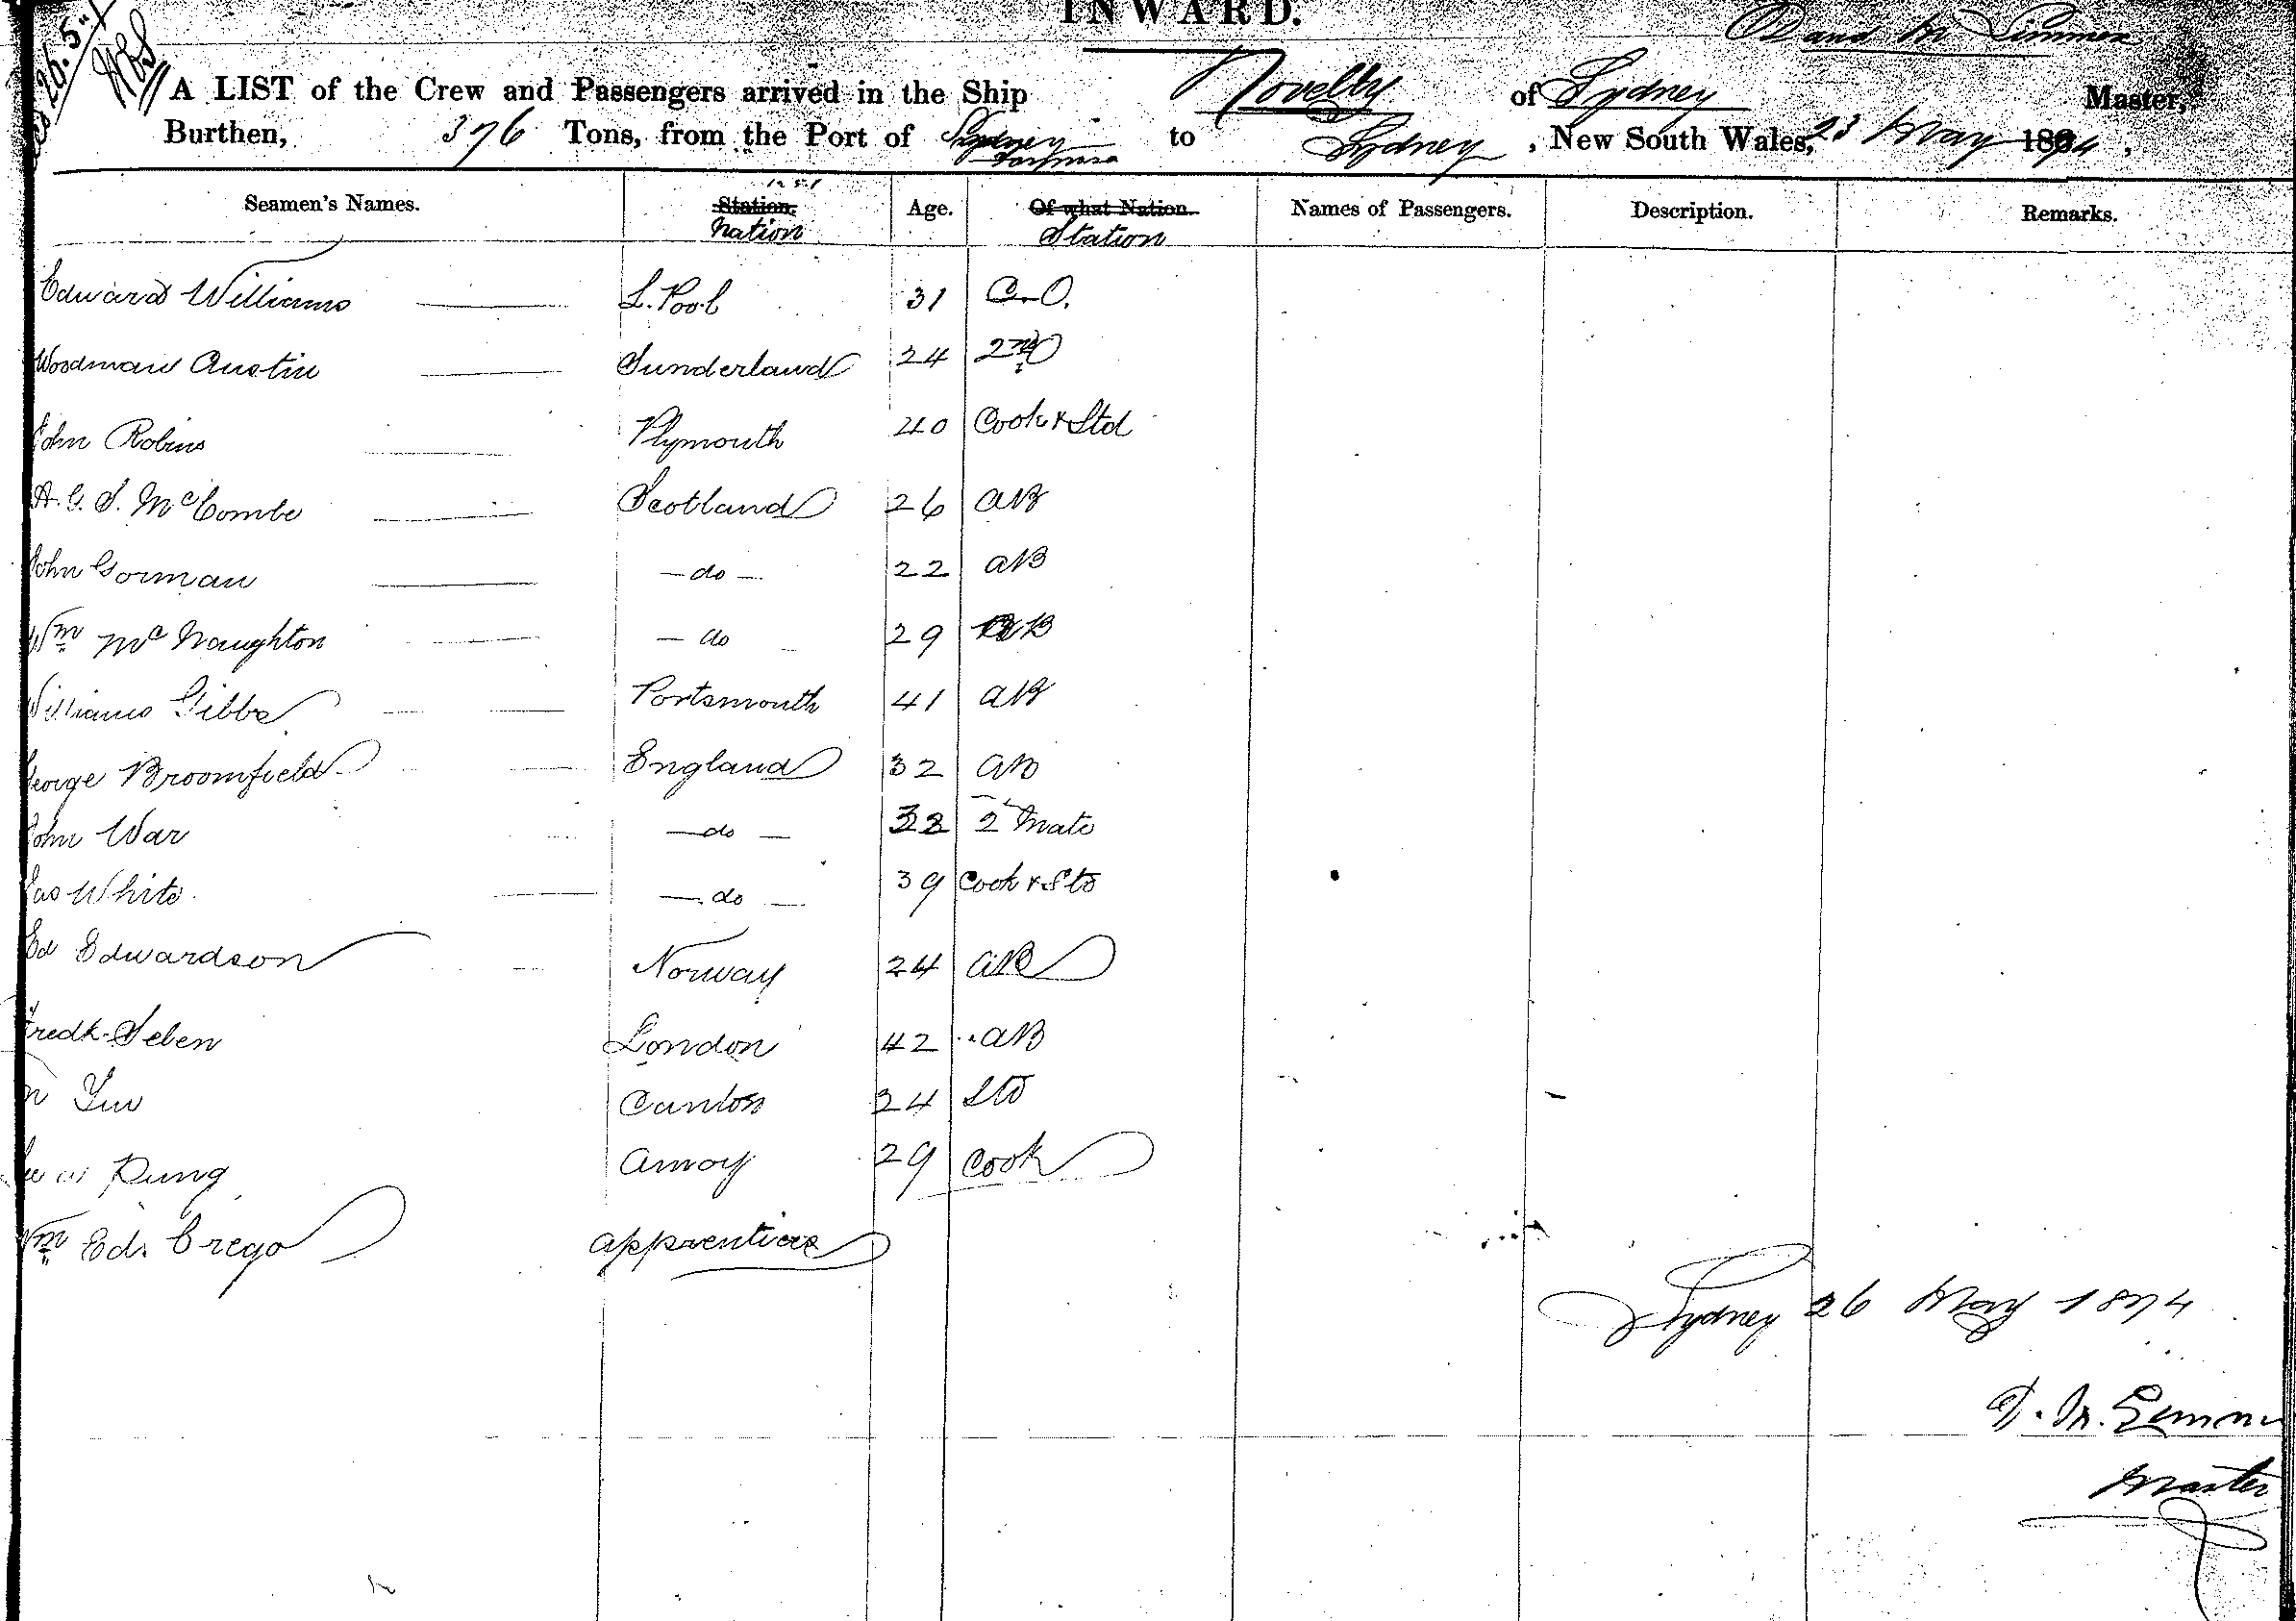 INWARD.
A LIST of the Crew and Passengers arrived in the Ship Novelty of Sydney Master,
Burthen, 376 Tons, from the Port of to Sydney, New South Wales, 23 May 1874,
Seamen's Names. Station. Age. Of what Nation. Names of Passengers. Description. Remarks.
Nation Station
Edward Williams L.Pool 31 C.O.
Woodman Austin Sunderland 24 2nd O
John Robins Plymouth 40 Cook & Std
A. G. S. McCombe Scotland 26 AB
John Gorman - do - 22 AB
Wm McNaughton - do - 29 AB
Williams Gibbs Portsmouth 41 AB
George Broomfield England 32 AB
John War - do - 2 Mate
Jas White - do - 39 Cook & Std
Ed Edwardson Norway 24 AB
Fredk. Seben London 42 AB
Canton 24 Std
Pung Amoy 29 Cook
Wm Ed. Crego apprentice
Sydney 26 May 1874
Master